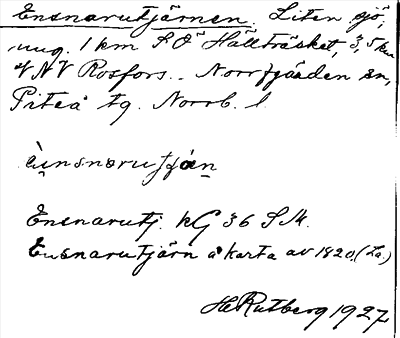 Ensnarutjärnen. Liten sjö,
ung. 1 km S Ö Hällträsket, 3,5 km
V N V Rosfors. Norrfjärden sn,
Piteå tg. Norrb. l.
Ensnarutj. KG 36 S 14.
Ensnarutjärn å karta av 1820. (La)
H Rutberg 1927